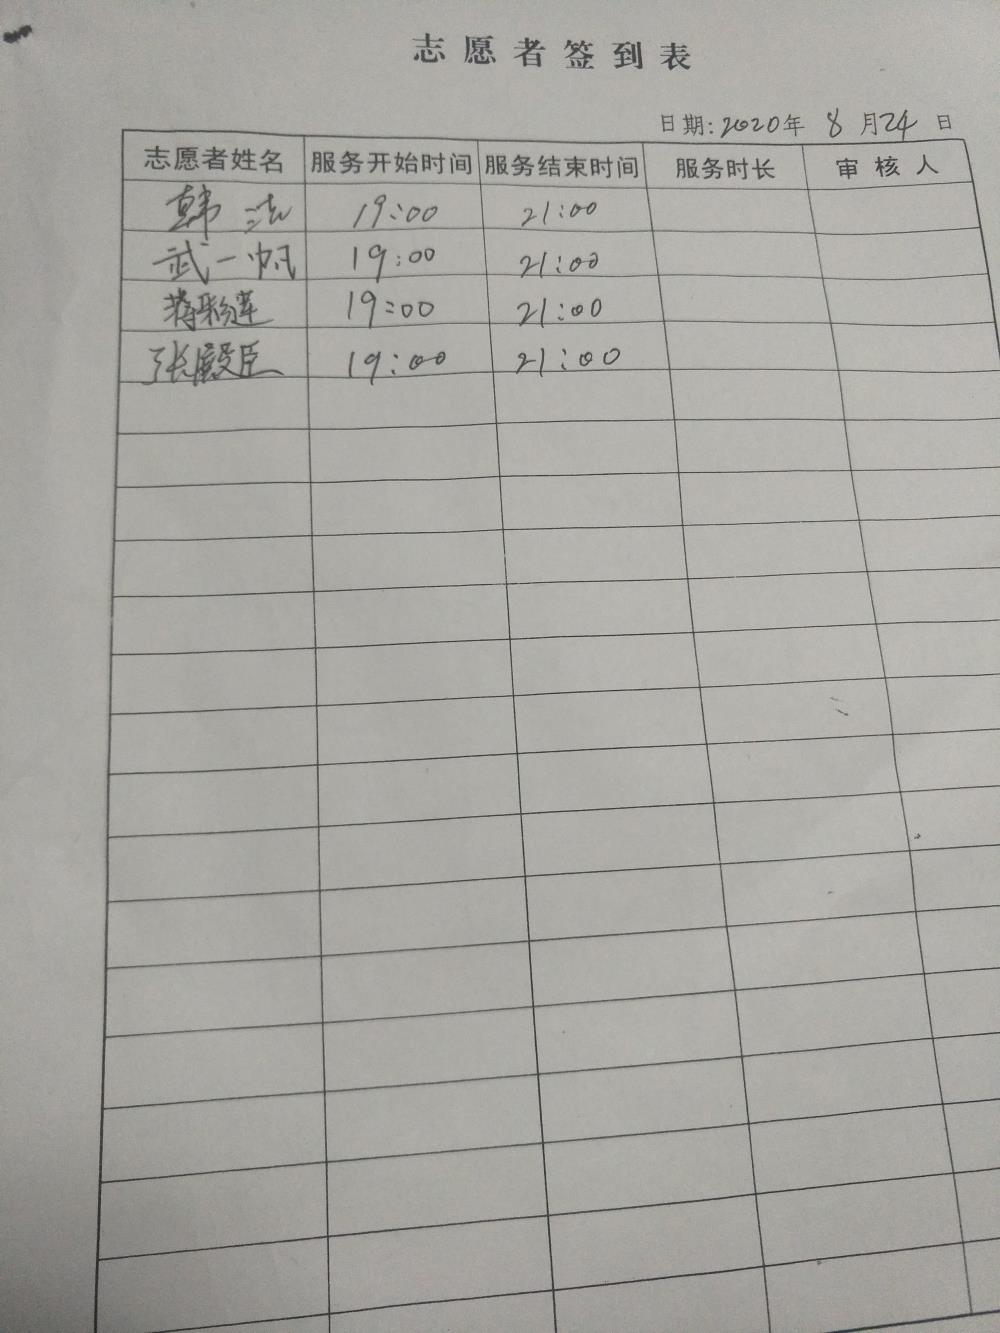 志愿者签到表
日期:2020年 8月24日
志愿者姓名 服务开始时间 服务结束时间 服务时长 审核人
韩 19:00 21:00
武一帆 19:00 21:00
蒋彩莲 19:00 21:00
张殿臣 19:00 21:00